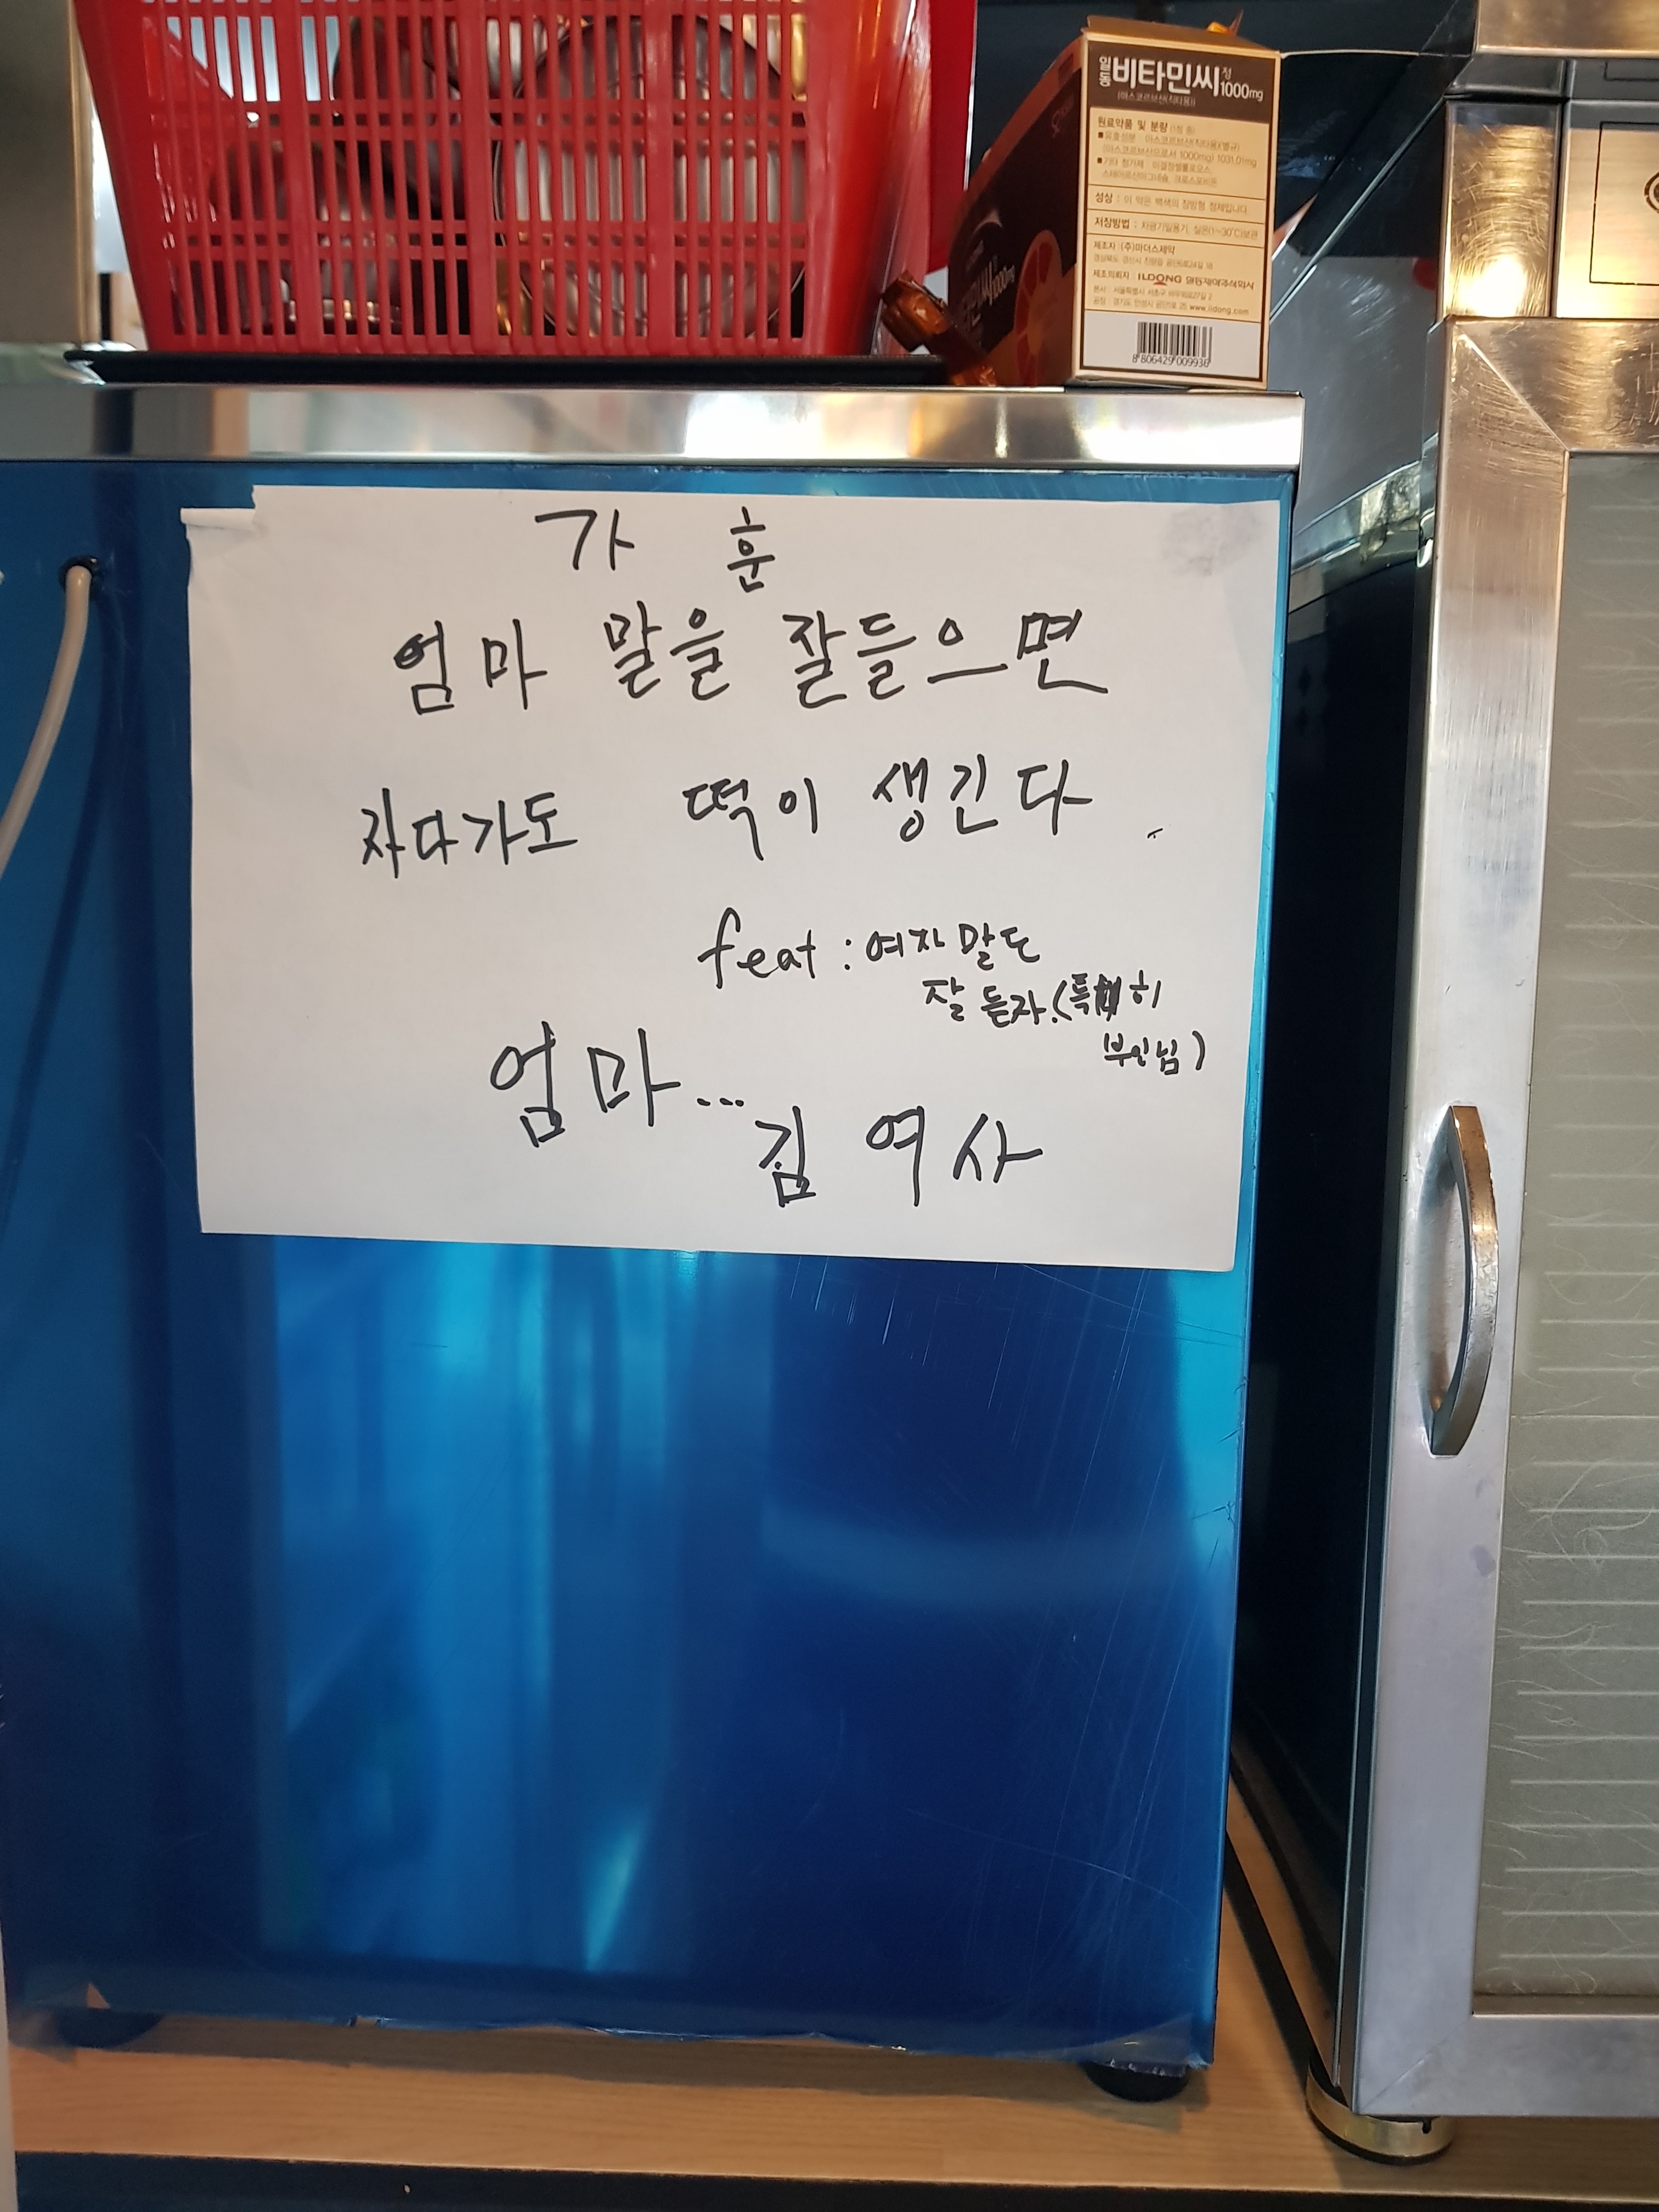 일동 비타민씨정 1000mg
(아스코르브산(직타용))
원료약품 및 분량 (1정 중)
■유효성분 : 아스코르브산(직타용)(별규)
(아스코르브산으로서 1000mg) 1031.01mg
■기타 첨가제 : 미결정셀룰로오스,
스테아르산마그네슘, 크로스포비돈
성상 : 이 약은 백색의 장방형 정제입니다.
저장방법 : 차광기밀용기, 실온(1~30℃)보관
제조자 : (주)마더스제약
제조의뢰자 : ILDONG 일동제약주식회사
www.ildong.com
8 806429 009936
민씨 1000mg
가 훈
엄마 말을 잘들으면
자다가도 떡이 생긴다.
feat : 여자말도
잘 듣자.(특히
부인님)
엄마...
김 여사